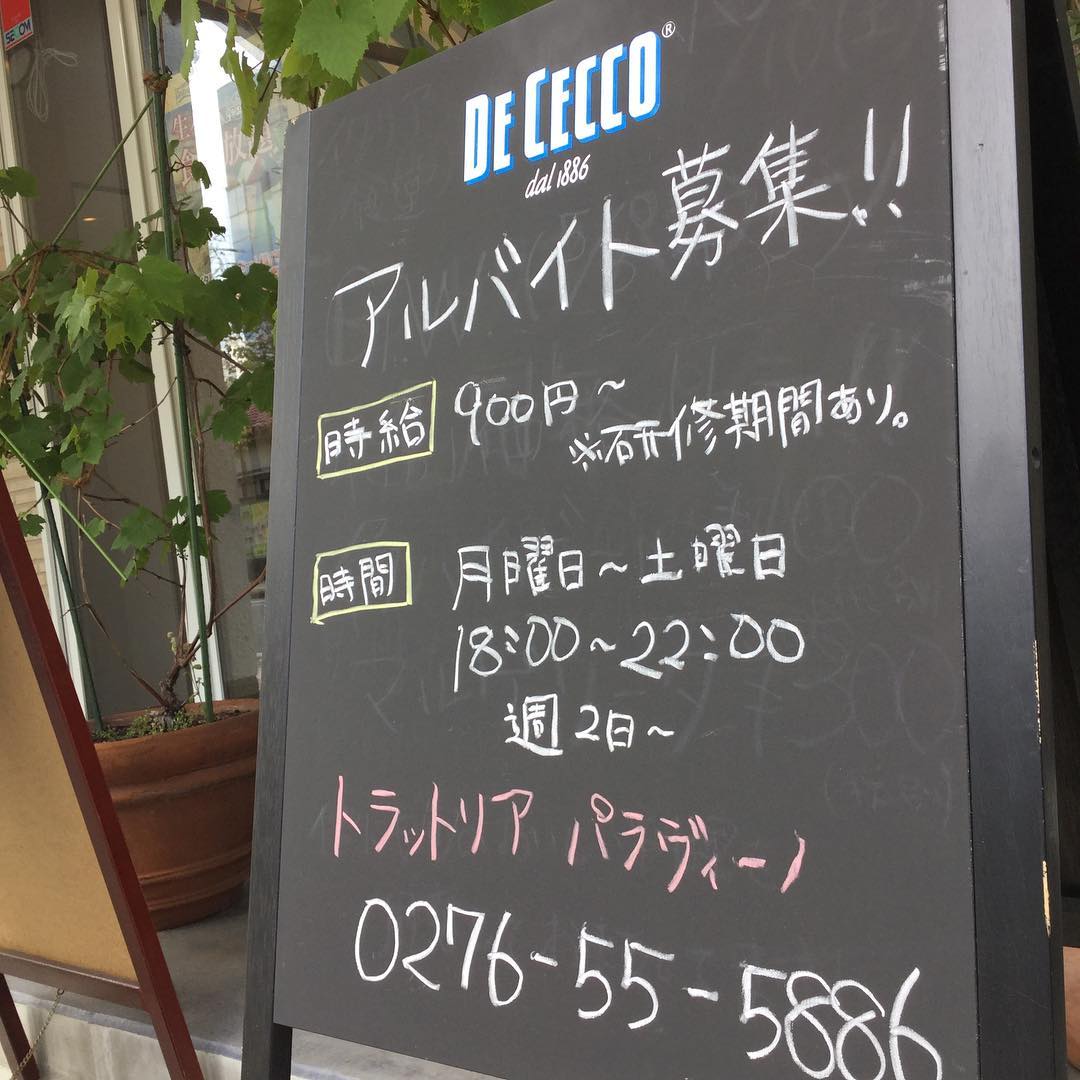 SECOM
DE CECCO®
dal 1886
アルバイト募集!!
時給 900円～
※研修期間あり。
時間 月曜日～土曜日
18:00～22:00
週2日～
トラットリア パラヴィーノ
0276-55-5886